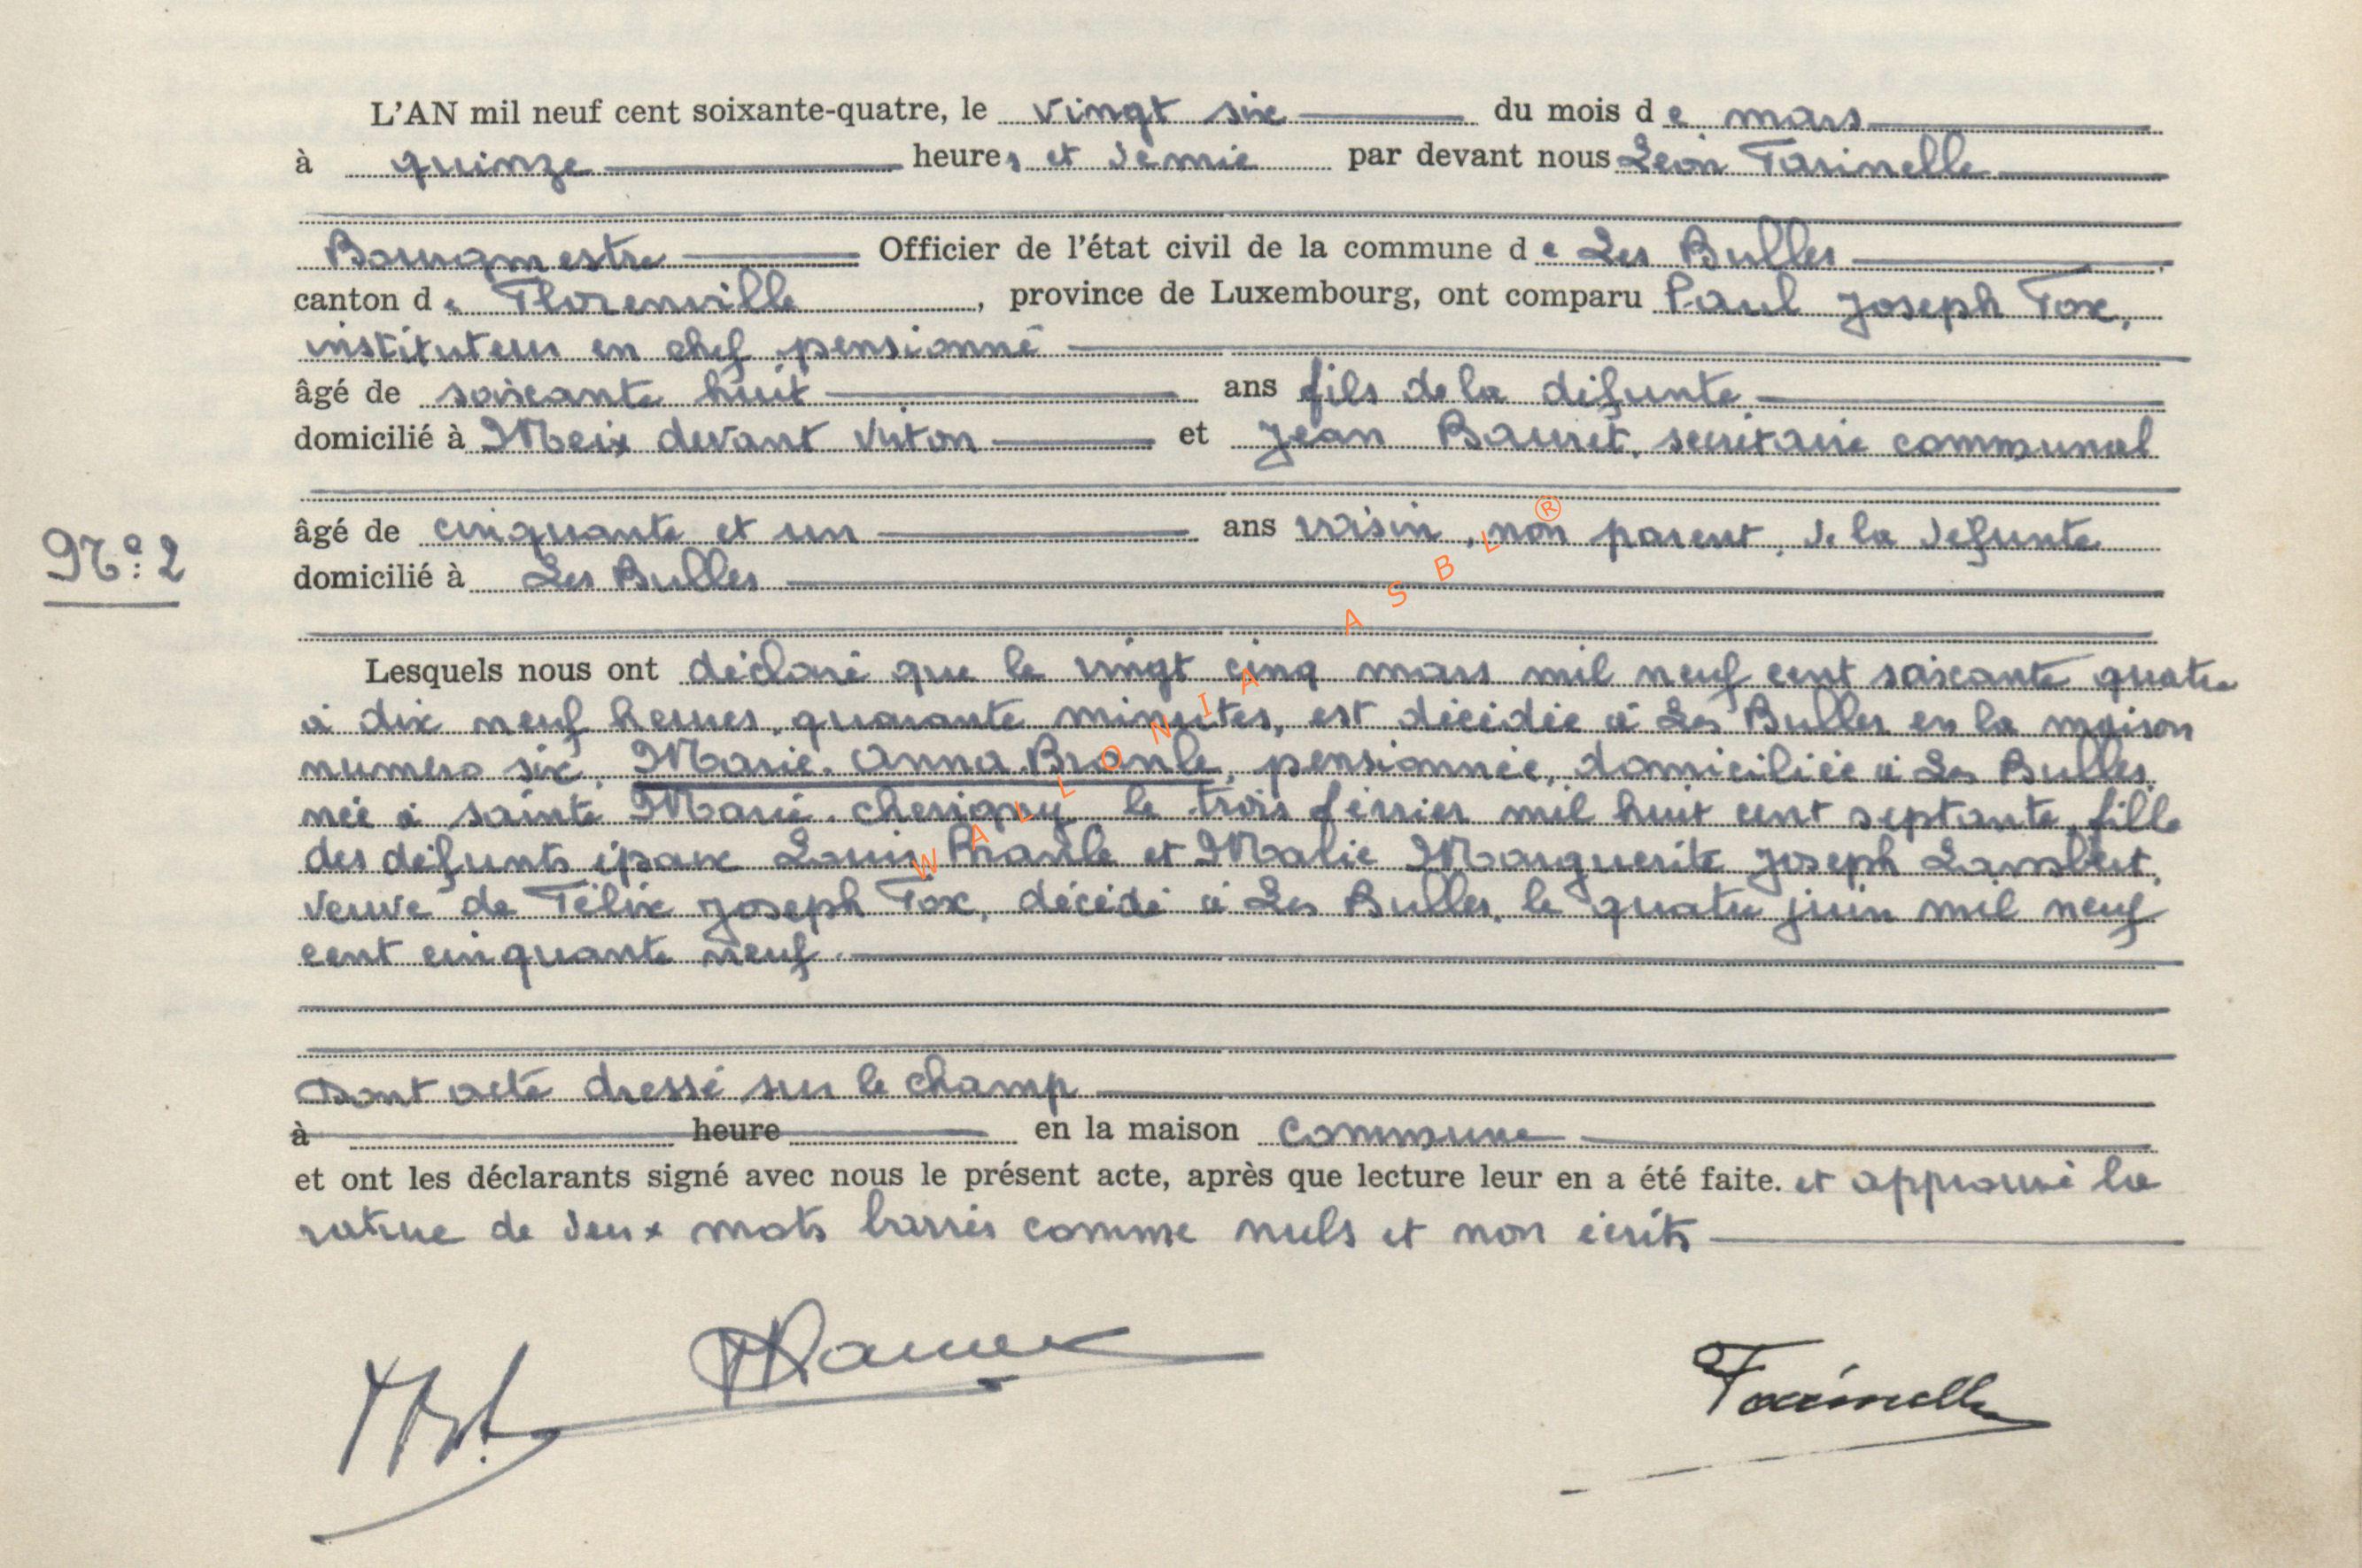 L'AN mil neuf cent soixante-quatre, le vingt six du mois de mars
à quinze heures et demie par devant nous Léon Farinelle
Bourgmestre Officier de l'état civil de la commune de Les Bulles
canton de Florenville, province de Luxembourg, ont comparu Paul Joseph Fox,
instituteur en chef pensionné
âgé de soixante huit ans fils de la défunte
domicilié à Meix devant Virton et Jean Bauret, secrétaire communal
âgé de cinquante et un ans voisin, non parent, de la défunte
N° 2
domicilié à Les Bulles
Lesquels nous ont déclaré que le vingt cinq mars mil neuf cent soixante quatre
à dix neuf heures quarante minutes, est décédée à Les Bulles en la maison
numero six, Marie Anna Branle, pensionnée, domiciliée à Les Bulles,
née à sainte Marie Chevigny le trois février mil huit cent septante, fille
des défunts époux Louis Branle et Marie Marguerite Joseph Lambert,
veuve de Félix Joseph Fox, décédé à Les Bulles, le quatre juin mil neuf
cent cinquante neuf.
Dont acte dressé sur le champ
à heure en la maison commune
et ont les déclarants signé avec nous le présent acte, après que lecture leur en a été faite. et approuvé la
rature de deux mots barrés comme nuls et non écrits
Farinelle
WALLONIA ASBL ®